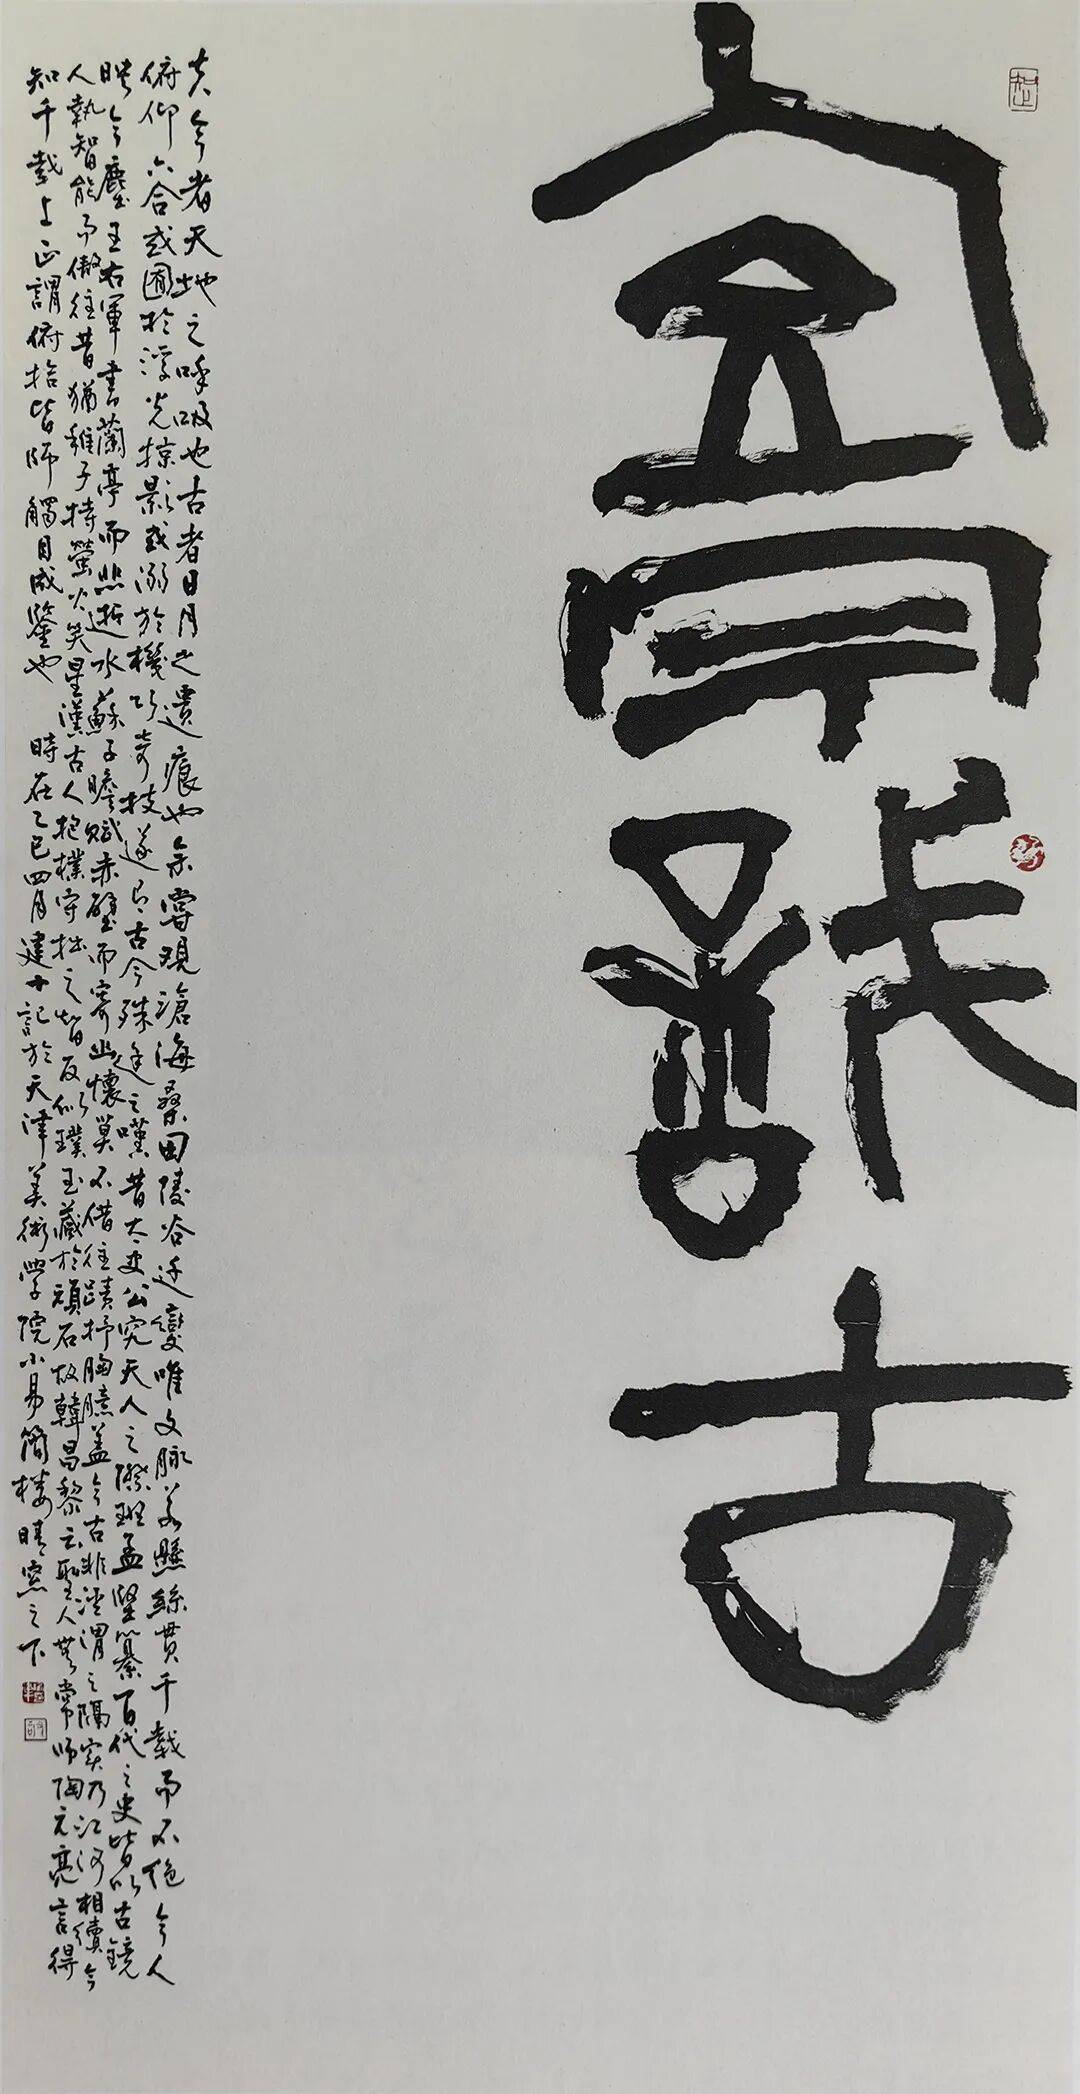 古
夫今者天地之呼吸也古者日月之遺痕也余嘗觀滄海桑田陵谷遷變唯文脉若懸絲貫千載而不絕今人
俯仰六合或囿於浮光掠影或溺於機巧奇技遂有古今殊途之嘆昔太史公究天人之際班孟堅纂百代之史皆以古鏡
映今塵王右軍書蘭亭而悲逝水蘇子瞻賦赤壁而寄幽懷莫不借往蹟抒胸臆蓋今古非涇渭之隔实乃江河相續今
人執智能而傲往昔猶稚子持螢火笑星漢古人抱樸守拙之智反似璞玉藏於頑石故韓昌黎云聖人無常師陶元亮言得
知千載上正謂俯拾皆師觸目成鑒也 時在乙巳四月建中記於天津美術學院小易簡樓晴窗之下